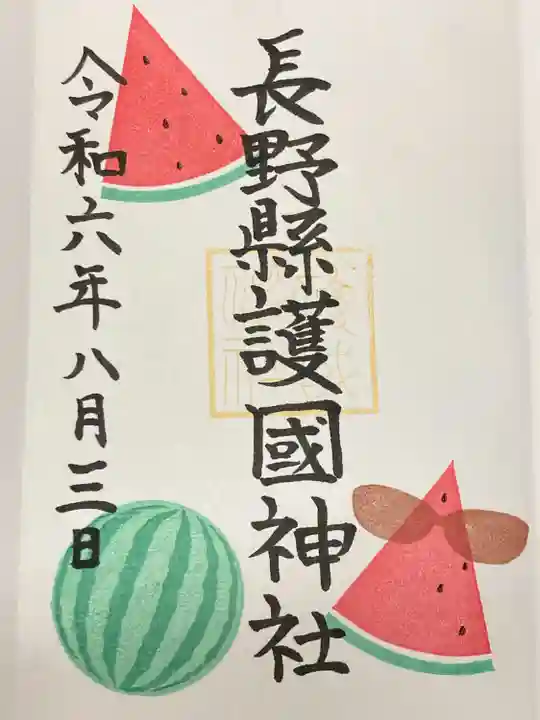 長野縣護國神社
令和六年八月三日